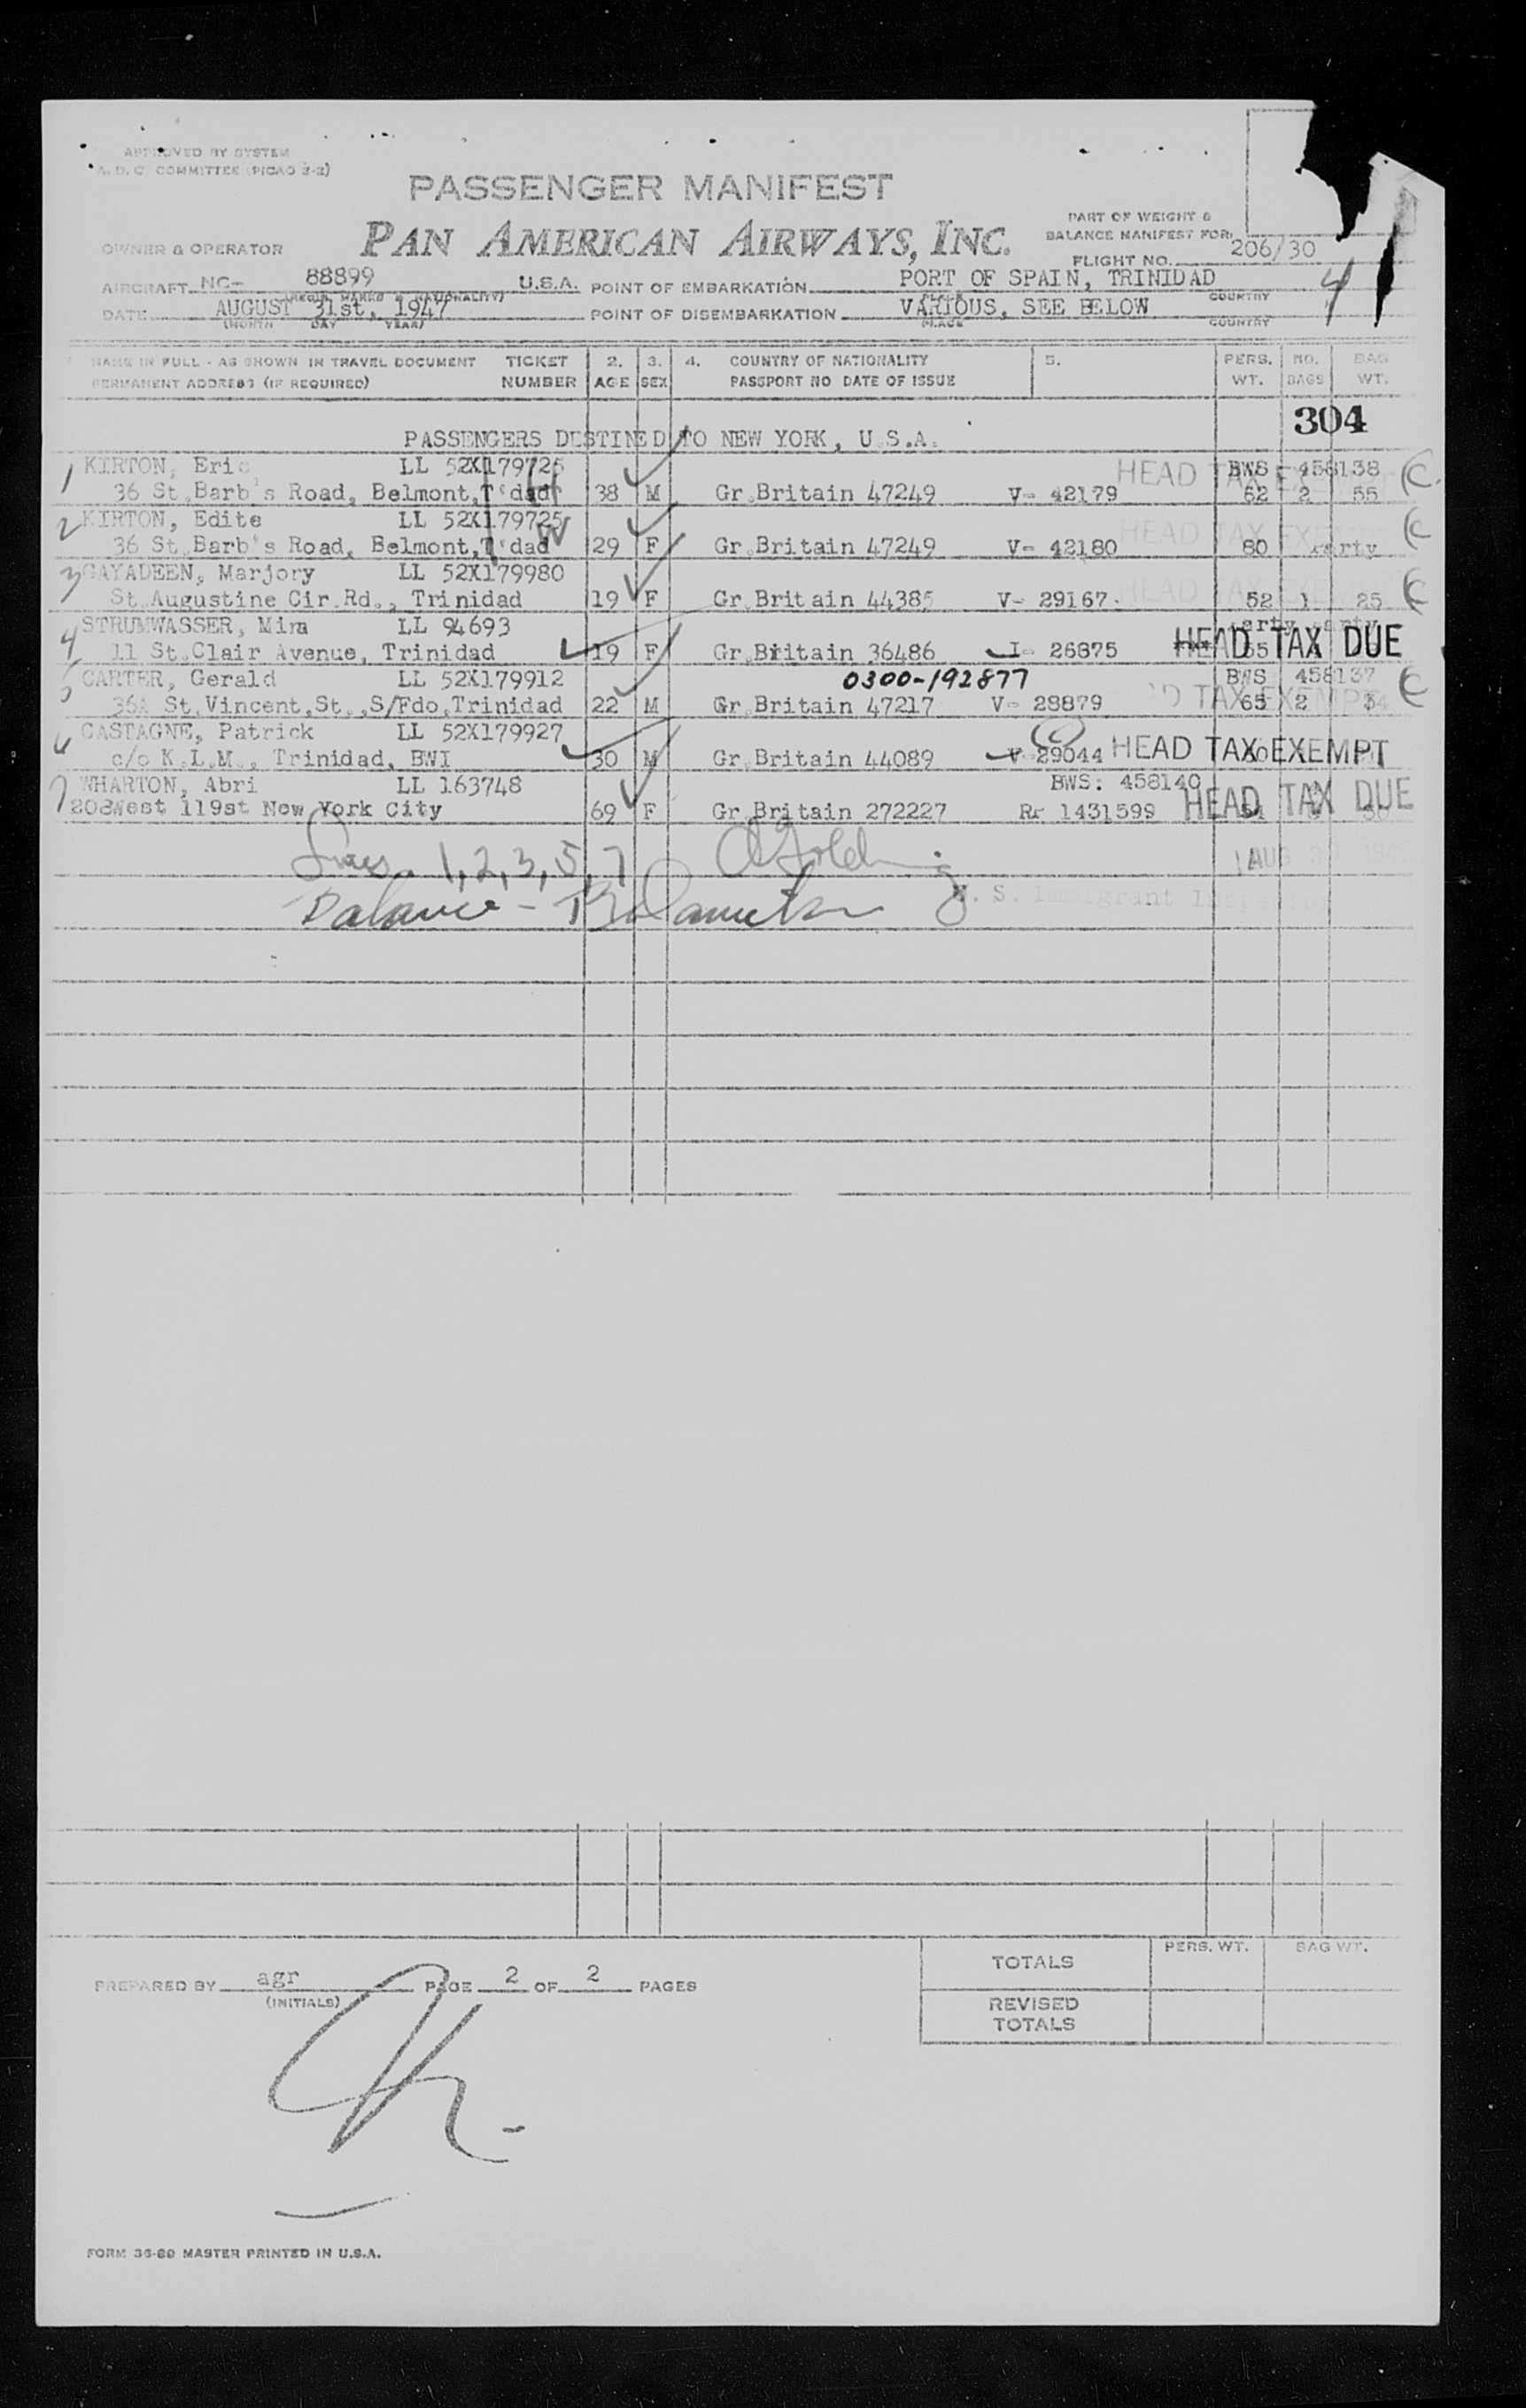 APPROVED BY SYSTEM
A. D. C. COMMITTEE (PICAO 2-2)
PASSENGER MANIFEST
PART OF WEIGHT &
BALANCE MANIFEST FOR:
OWNER & OPERATOR PAN AMERICAN AIRWAYS, INC.
FLIGHT NO. 206/30
AIRCRAFT NC- 88899 U.S.A. POINT OF EMBARKATION PORT OF SPAIN, TRINIDAD
(REGIS. MARKS & NATIONALITY) COUNTRY
4
DATE AUGUST 31st, 1947 POINT OF DISEMBARKATION VARIOUS, SEE BELOW
(MONTH DAY YEAR) PLACE COUNTRY
NAME IN FULL - AS SHOWN IN TRAVEL DOCUMENT TICKET 2. 3. 4. COUNTRY OF NATIONALITY 5. PERS. NO. BAG
PERMANENT ADDRESS (IF REQUIRED) NUMBER AGE SEX PASSPORT NO DATE OF ISSUE WT. BAGS WT.
304
PASSENGERS DESTINED TO NEW YORK, U.S.A.
1 KIRTON, Eric LL 52X179725 HEAD TAX BWS 458138
36 St.Barb's Road, Belmont,T'dad 38 M Gr.Britain 47249 V- 42179 62 2 55
2 KIRTON, Edite LL 52X179725 HEAD TAX EXEMPT
36 St.Barb's Road, Belmont,T'dad 29 F Gr.Britain 47249 V- 42180 80 party
3 GAYADEEN, Marjory LL 52X179980 HEAD TAX
St.Augustine Cir.Rd., Trinidad 19 F Gr.Britain 44385 V- 29167 52 1 25
4 STRUMWASSER, Mira LL 94693
11 St.Clair Avenue, Trinidad 19 F Gr.Britain 36486 I- 26875 HEAD TAX DUE
5 CARTER, Gerald LL 52X179912 0300-192877 BWS 458137
36A St.Vincent,St.,S/Fdo,Trinidad 22 M Gr.Britain 47217 V- 28879 HEAD TAX EXEMPT 65 2 34
CASTAGNE, Patrick LL 52X179927
c/o K.L.M., Trinidad, BWI 30 M Gr.Britain 44089 V 29044 HEAD TAX EXEMPT
7 WHARTON, Abri LL 163748 BWS: 458140
208West 119st New York City 69 F Gr.Britain 272227 Rr 1431599 HEAD TAX DUE
1, 2, 3, 5, 7
AUG
Balance - U. S. Immigrant Inspector
TOTALS PERS. WT. BAG WT.
PREPARED BY agr PAGE 2 OF 2 PAGES
(INITIALS)
REVISED
TOTALS
FORM 36-89 MASTER PRINTED IN U.S.A.